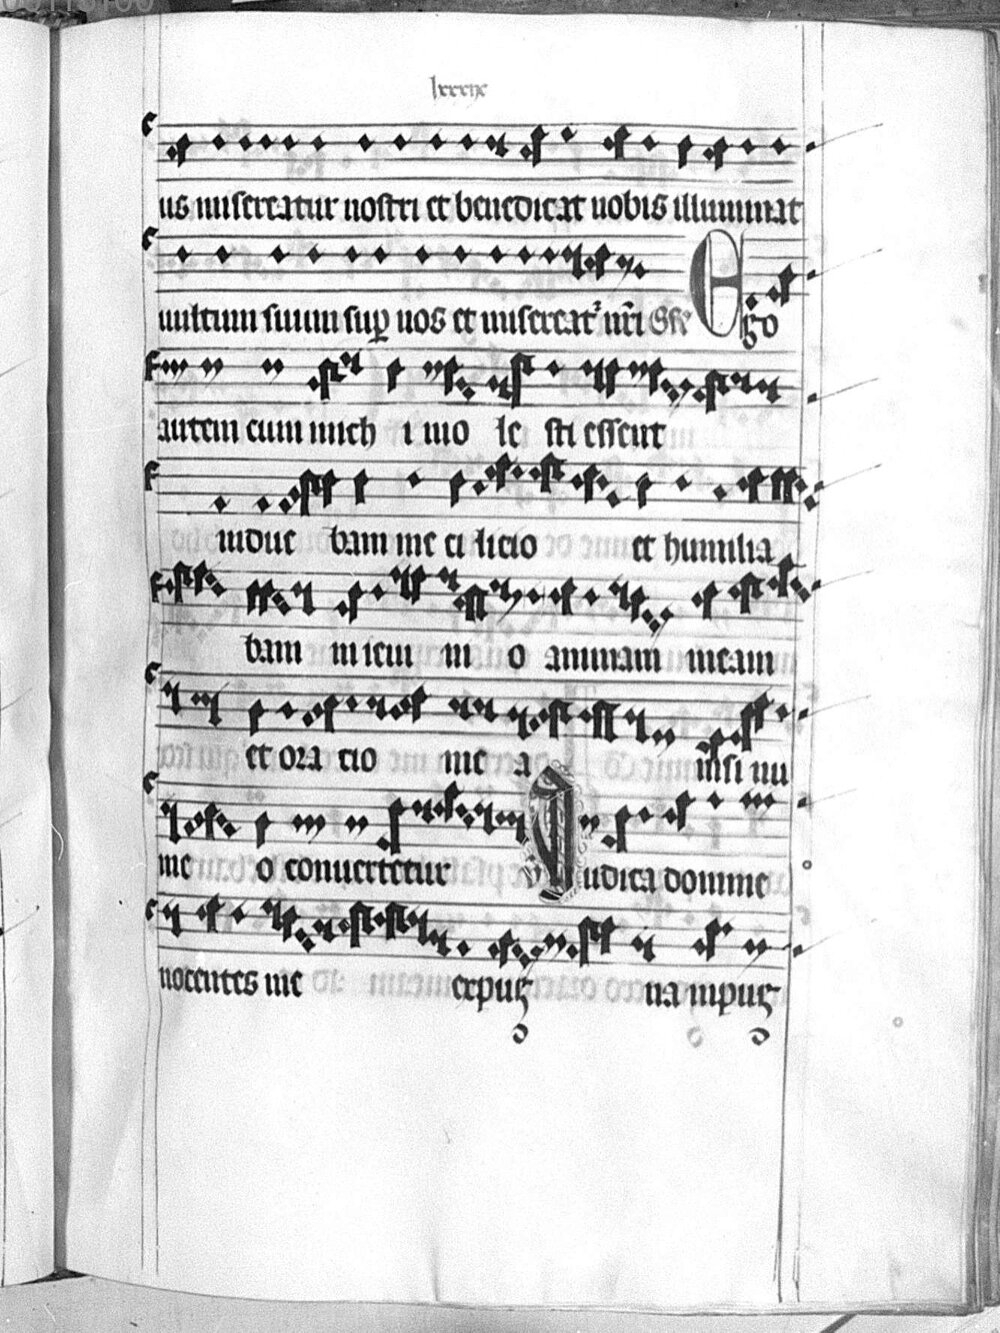 lxxxix
us misereatur nostri et benedicat uobis illuminat
uultum suum sup uos et misereat' nr̄i Gr̄ Ego
autem cum mich i mo le sti essent
indue bam me ci licio et humilia
bam in ieiu ni o animam meam
et ora cio me a in si nu
me o conuertetur v Iudica domine
nocentes me expug na inpug